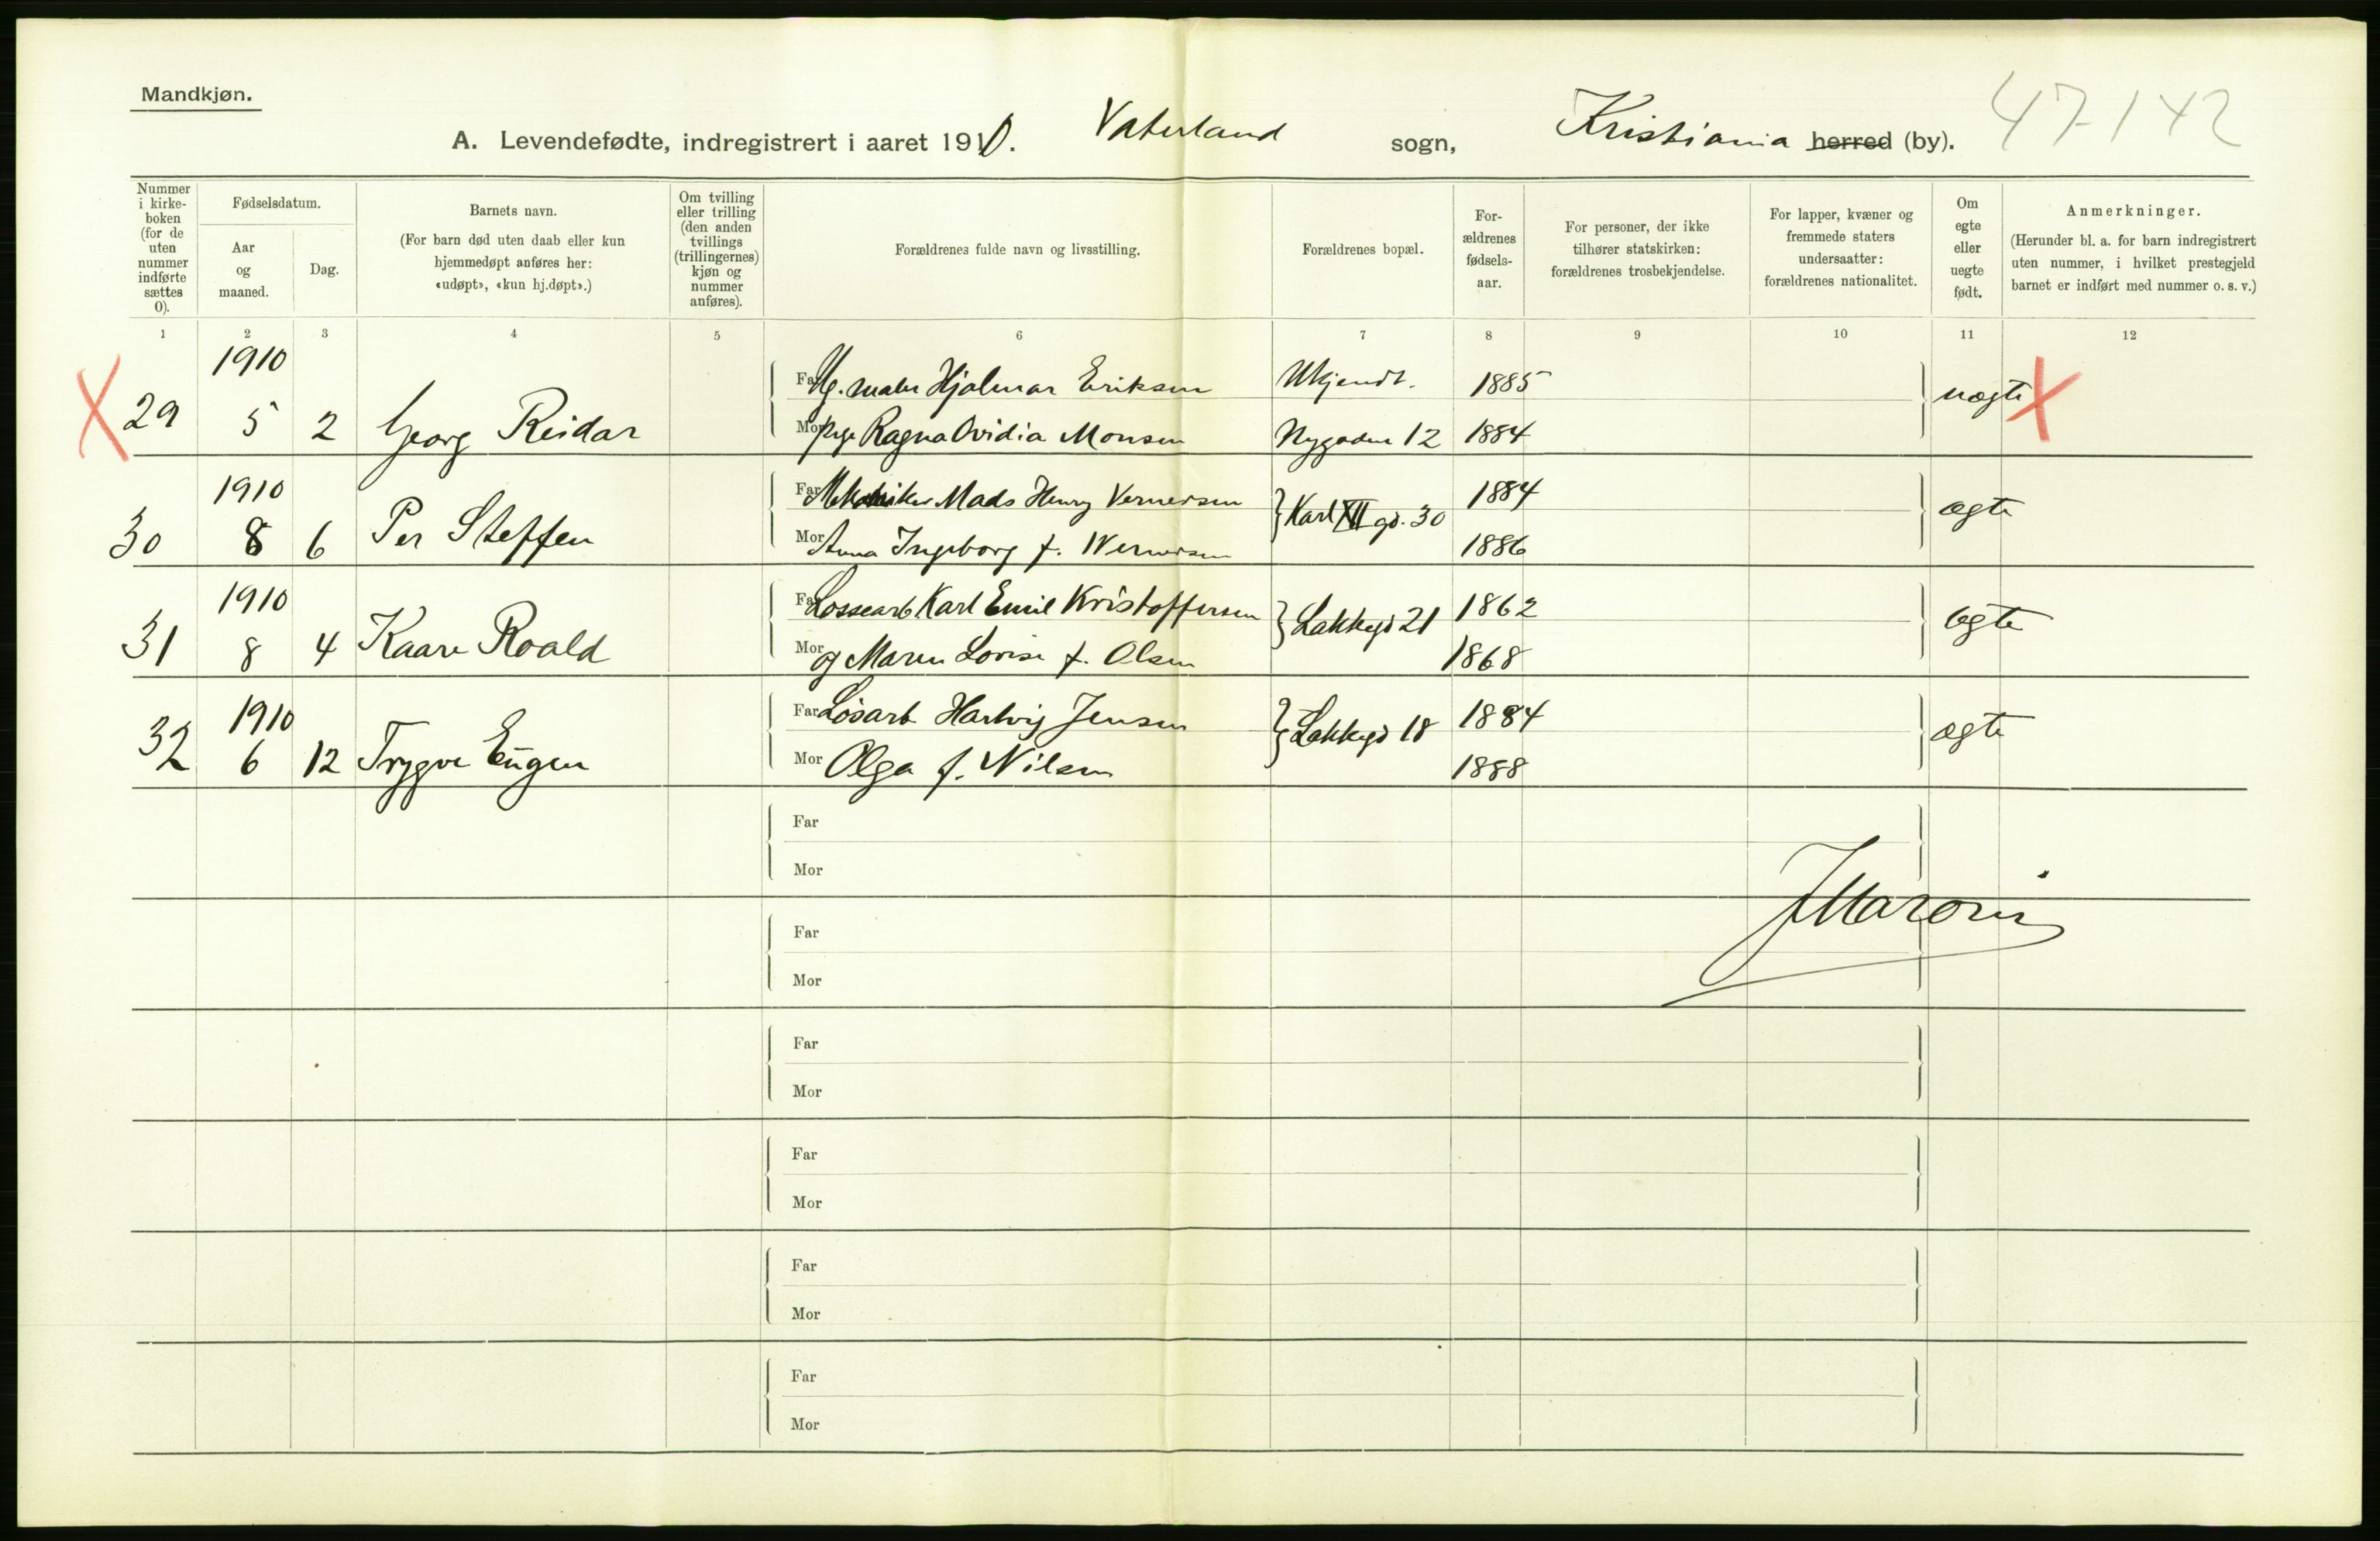 Mandkjøn.
47-142
A. Levendefødte, indregistrert i aaret 1910. Vaterland sogn, Kristiania herred (by).
Nummer i kirke-boken (for de uten nummer indførte sættes 0).
Fødselsdatum.
Aar og maaned.
Dag.
Barnets navn.
(For barn død uten daab eller kun hjemmedøpt anføres her: «udøpt», «kun hj.døpt».)
Om tvilling eller trilling (den anden tvillings (trillingernes) kjøn og nummer anføres).
Forældrenes fulde navn og livsstilling.
Forældrenes bopæl.
For-ældrenes fødsels-aar.
For personer, der ikke tilhører statskirken: forældrenes trosbekjendelse.
For lapper, kvæner og fremmede staters undersaatter: forældrenes nationalitet.
Om egte eller uegte født.
Anmerkninger.
(Herunder bl. a. for barn indregistrert uten nummer, i hvilket prestegjeld barnet er indført med nummer o. s. v.)
1 2 3 4 5 6 7 8 9 10 11 12
1910
Far maler Hjalmar Eriksen Ukjendt. 1885
X 29 5 2 Georg Reidar uægte X
Mor Pige Ragna Ovidia Monsen Nygaden 12 1884
1910
Far Mekaniker Mads Henry Vernersen 1884
30 8 6 Per Steffen Karl XII gd. 30 ægte
Mor Anna Ingeborg f. Wernersen 1886
1910
Far Lossearb Karl Emil Kristoffersen 1862
31 8 4 Kaare Roald Lakkegd 21 ægte
Mor og Maren Lovise f. Olsen 1868
1910
Far Løsarb Hartvig Jensen 1884
32 6 12 Trygve Eugen Lakkegd 18 ægte
Mor Olga f. Nilsen 1888
Far
Mor
Far
Mor
Far
Mor
Far
Mor
Far
Mor
Far
Mor